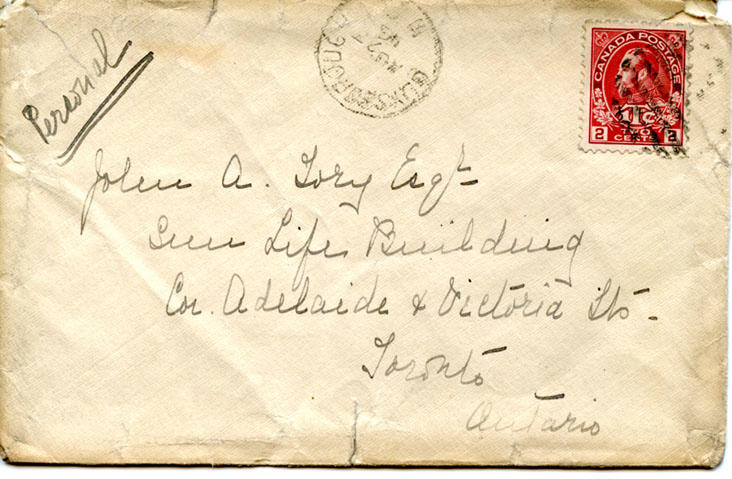 Personal
CANADA POSTAGE
1TC
2 CENTS 2
John A. Tory Esqr
Sun Life Building
Cor. Adelaide & Victoria Sts.
Toronto
Ontario